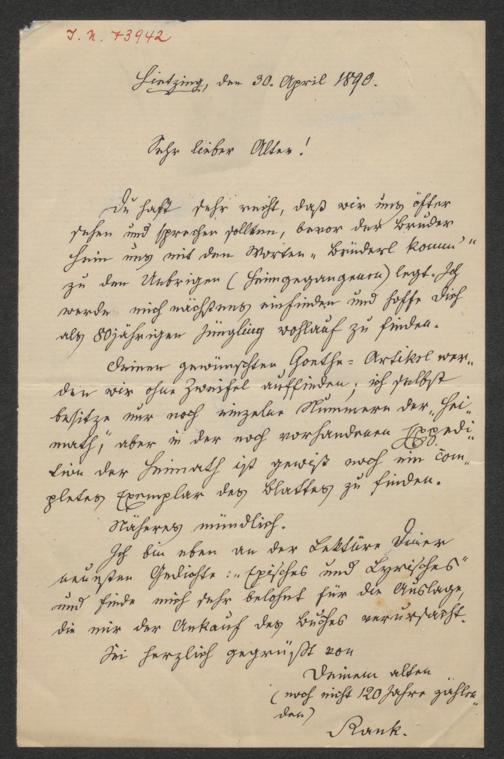 J. N. 73942
Hietzing, den 30. April 1890.
Sehr lieber Alter!
Du hast sehr recht, daß wir uns öfter
sehen und sprechen sollten, bevor der Bruder
Hein uns mit den Worten „Brüderl komm'"
zu den Uebrigen (Heimgegangenen) legt. Ich
werde mich nächstens einfinden und hoffe Dich
als 80jährigen Jüngling wohlauf zu finden.
Deinen gewünschten Goethe-Artikel wer-
den wir ohne Zweifel auffinden; ich selbst
besitze nur noch einzelne Nummern der „Hei-
math", aber in der noch vorhandenen Expedi-
tion der Heimath ist gewiß noch ein com-
pletes Exemplar des Blattes zu finden.
Näheres mündlich.
Ich bin eben an der Lektüre Deiner
neuesten Gedichte: „Episches und Lyrisches"
und finde mich sehr belohnt für die Auslage,
die mir der Ankauf des Buches verursacht.
Sei herzlich gegrüßt von
Deinem alten
(noch nicht 120 Jahre zählen-
den)
Rank.